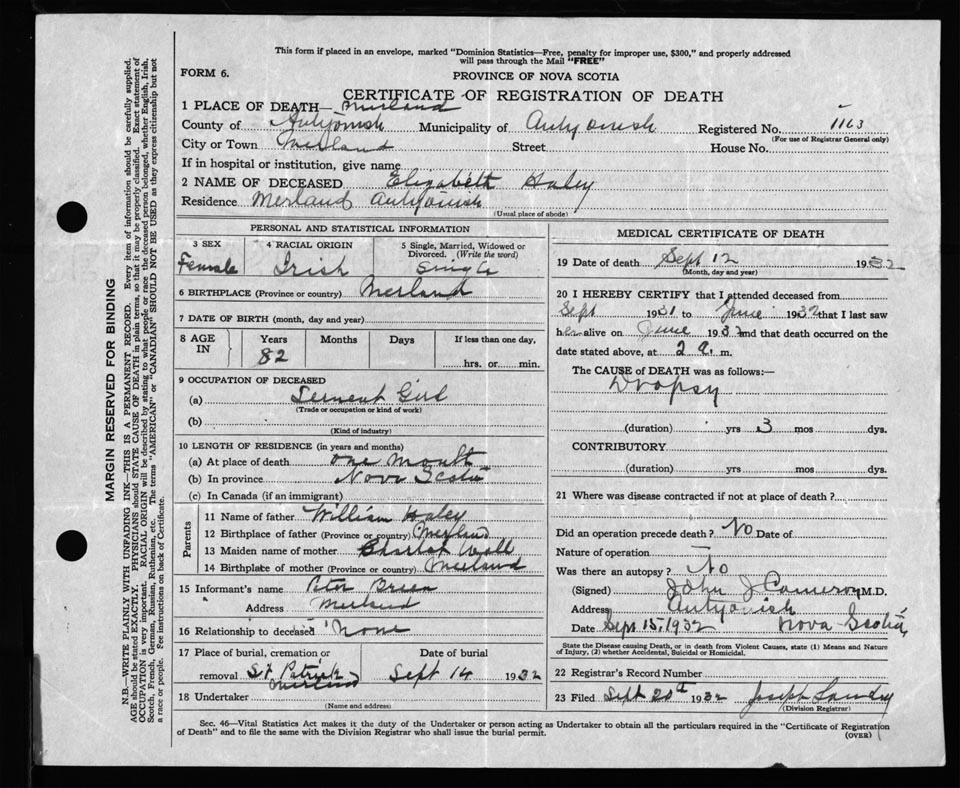 This form if placed in an envelope, marked "Dominion Statistics—Free, penalty for improper use, $300," and properly addressed
will pass through the Mail "FREE"
FORM 6.
PROVINCE OF NOVA SCOTIA
CERTIFICATE OF REGISTRATION OF DEATH
1 PLACE OF DEATH— Merland
County of Antigonish Municipality of Antigonish Registered No. 1163
(For use of Registrar General only)
City or Town Merland Street House No.
If in hospital or institution, give name
2 NAME OF DECEASED Elizabeth Haley
Residence Merland Antigonish
(Usual place of abode)
PERSONAL AND STATISTICAL INFORMATION
3 SEX 4 RACIAL ORIGIN 5 Single, Married, Widowed or
Divorced. (Write the word)
Female Irish Single
6 BIRTHPLACE (Province or country) Merland
7 DATE OF BIRTH (month, day and year)
8 AGE IN Years Months Days If less than one day,
82 hrs. or min.
9 OCCUPATION OF DECEASED
(a) Servent Girl
(Trade or occupation or kind of work)
(b)
(Kind of industry)
10 LENGTH OF RESIDENCE (in years and months)
(a) At place of death one month
(b) In province Nova Scotia
(c) In Canada (if an immigrant)
Parents
11 Name of father William Haley
12 Birthplace of father (Province or country) Merland
13 Maiden name of mother Wall
14 Birthplace of mother (Province or country) Merland
15 Informant's name Peter Breen
Address Merland
16 Relationship to deceased None
17 Place of burial, cremation or Date of burial
removal St Patrick Sept 14 1932
Merland
18 Undertaker
(Name and address)
MEDICAL CERTIFICATE OF DEATH
19 Date of death Sept 12 1932
(Month, day and year)
20 I HEREBY CERTIFY that I attended deceased from
Sept 1931 to June 1932 that I last saw
her alive on June 1932 and that death occurred on
date stated above, at 2 a. m.
The CAUSE of DEATH was as follows:—
Dropsy
(duration) yrs 3 mos dys.
CONTRIBUTORY
(duration) yrs. mos. dys.
21 Where was disease contracted if not at place of death?
Did an operation precede death? No Date of
Nature of operation —
Was there an autopsy? No
(Signed) John J Cameron M.D.
Address Antigonish
Date Sept 15, 1932 Nova Scotia
State the Disease causing Death, or in death from Violent Causes, state (1) Means and Nature
of Injury, (2) whether Accidental, Suicidal or Homicidal.
22 Registrar's Record Number
23 Filed Sept 20th 1932 Joseph Landry
(Division Registrar)
Sec. 46—Vital Statistics Act makes it the duty of the Undertaker or person acting as Undertaker to obtain all the particulars required in the "Certificate of Registration
of Death" and to file the same with the Division Registrar who shall issue the burial permit.
(OVER)
MARGIN RESERVED FOR BINDING
N.B.—WRITE PLAINLY WITH UNFADING INK—THIS IS A PERMANENT RECORD. Every item of information should be carefully supplied.
AGE should be stated EXACTLY. PHYSICIANS should STATE CAUSE OF DEATH in plain terms, so that it may be properly classified. Exact statement of
OCCUPATION is very important. RACIAL ORIGIN will be described by stating to what people or race the deceased person belonged, whether English, Irish,
Scotch, French, German, Russian, Ruthenian, etc. The terms "AMERICAN" or "CANADIAN" SHOULD NOT BE USED as they express citizenship but not
a race or people. See instructions on back of Certificate.